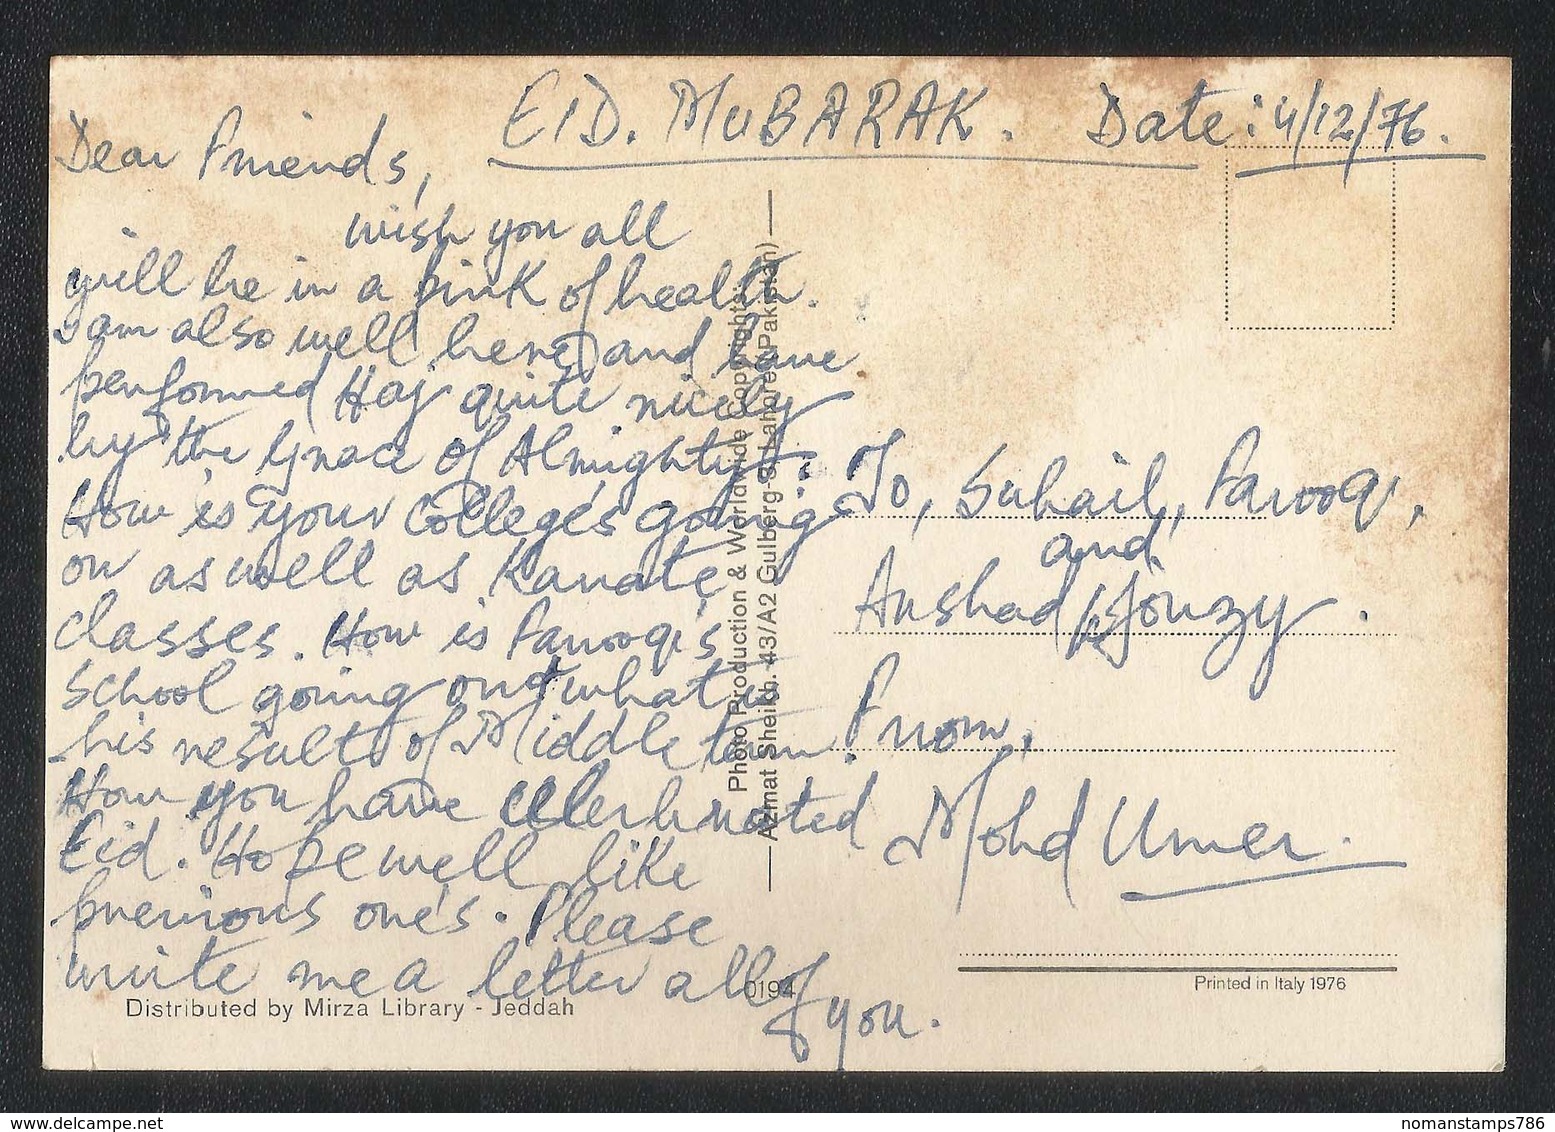 EID. MUBARAK. Date: 4/12/76.
Dear Friends,
wish you all
will be in a pink of health.
I am also well here and have
performed Haj quite nicely
by the Grace of Almighty.
How is your College's going
on as well as Karate
classes. How is Farooq's
School going on & what is
his result of Middle term.
How you have celerbrated
Eid. Hope well like
previous one's. Please
write me a letter all of
you.
To, Suhail, Farooq,
and
Arshad
From,
Mohd Umer.
Photo Production & Worldwide Copyrights:
Azmat Sheikh. 43/A2 Gulberg-3-Lahore (Pakistan)
0194
Distributed by Mirza Library - Jeddah
Printed in Italy 1976
nomanstamps786